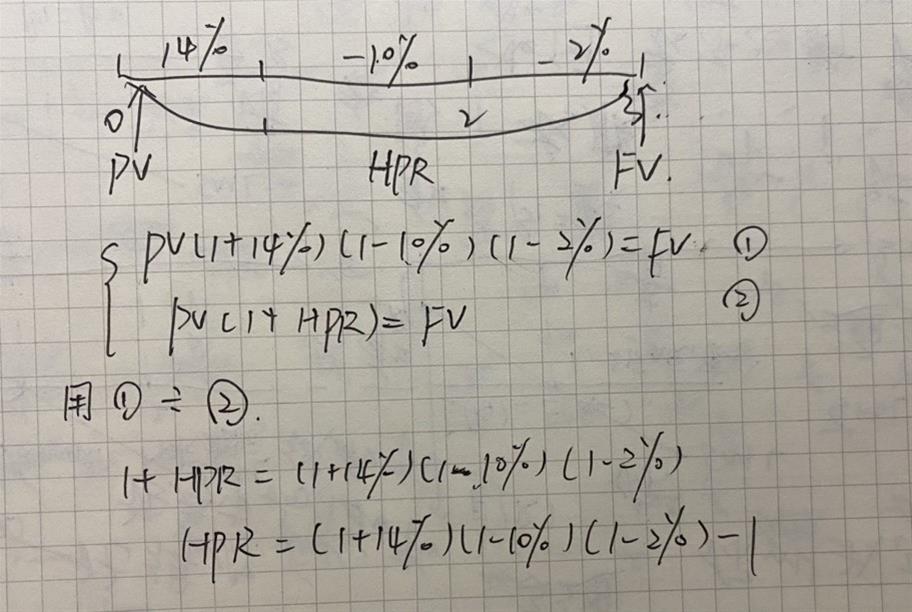 14% -10% -2%
0 1 2 3
PV HPR FV.
PV(1+14%)(1-10%)(1-2%)=FV. ①
PV(1+HPR)=FV ②
用 ① ÷ ②.
1+HPR=(1+14%)(1-10%)(1-2%)
HPR=(1+14%)(1-10%)(1-2%)-1